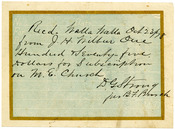 Recd, Walla Walla Oct 23/78
from J. H. Wilbur One
Hundred & Seventy five
Dollars for Subscription
on M. E. Church
D G Strong
per B. F. Burch